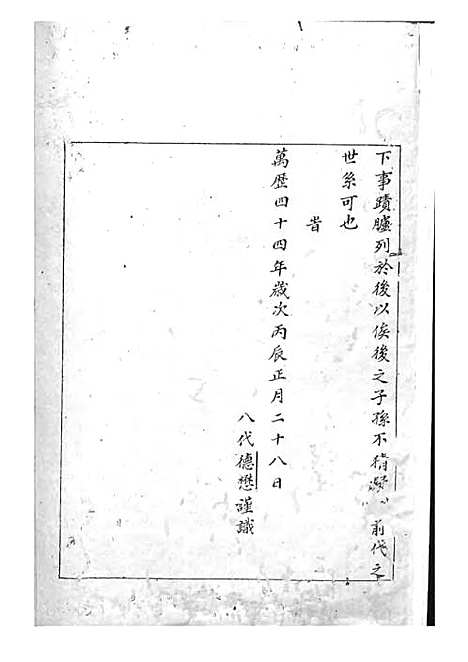 下事蹟臚列於後以俟後之子孫不精前代之
世系可也
旹
萬歷四十四年歲次丙辰正月二十八日
八代德懋謹識